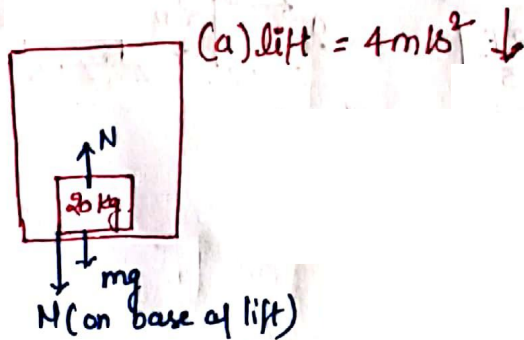 (a) lift = 4m/s² ↓
N
20 kg
mg
N (on base of lift)